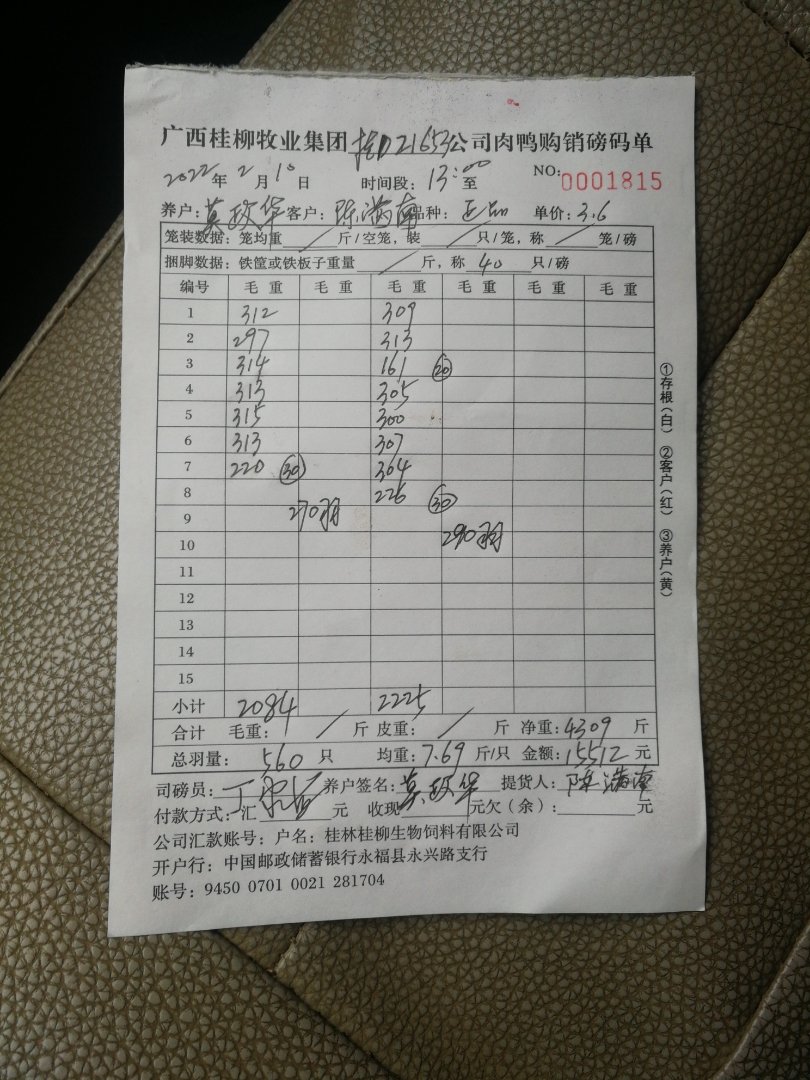 广西桂柳牧业集团 桂D21653 公司肉鸭购销磅码单
2022年2月10日 时间段：13:00至 NO: 0001815
养户：莫政华 客户：陈满南 品种：正品 单价：3.6
笼装数据：笼均重 / 斤/空笼，装 / 只/笼，称 / 笼/磅
捆脚数据：铁筐或铁板子重量 / 斤，称 40 只/磅
编号 毛重 毛重 毛重 毛重 毛重 毛重
1 312 309
2 297 313
3 314 161 20
4 313 305
5 315 300
6 313 307
7 220 30 304
8 226 30
9 270羽
10 290羽
11
12
13
14
15
小计 2084 2225
合计 毛重： / 斤 皮重： / 斤 净重：4309 斤
总羽量： 560 只 均重：7.69 斤/只 金额：15512 元
司磅员： 养户签名：莫政华 提货人：陈满南
付款方式：汇 元 收现 元欠（余）： 元
公司汇款账号：户名：桂林桂柳生物饲料有限公司
开户行：中国邮政储蓄银行永福县永兴路支行
账号：9450 0701 0021 281704
①存根（白） ②客户（红） ③养户（黄）